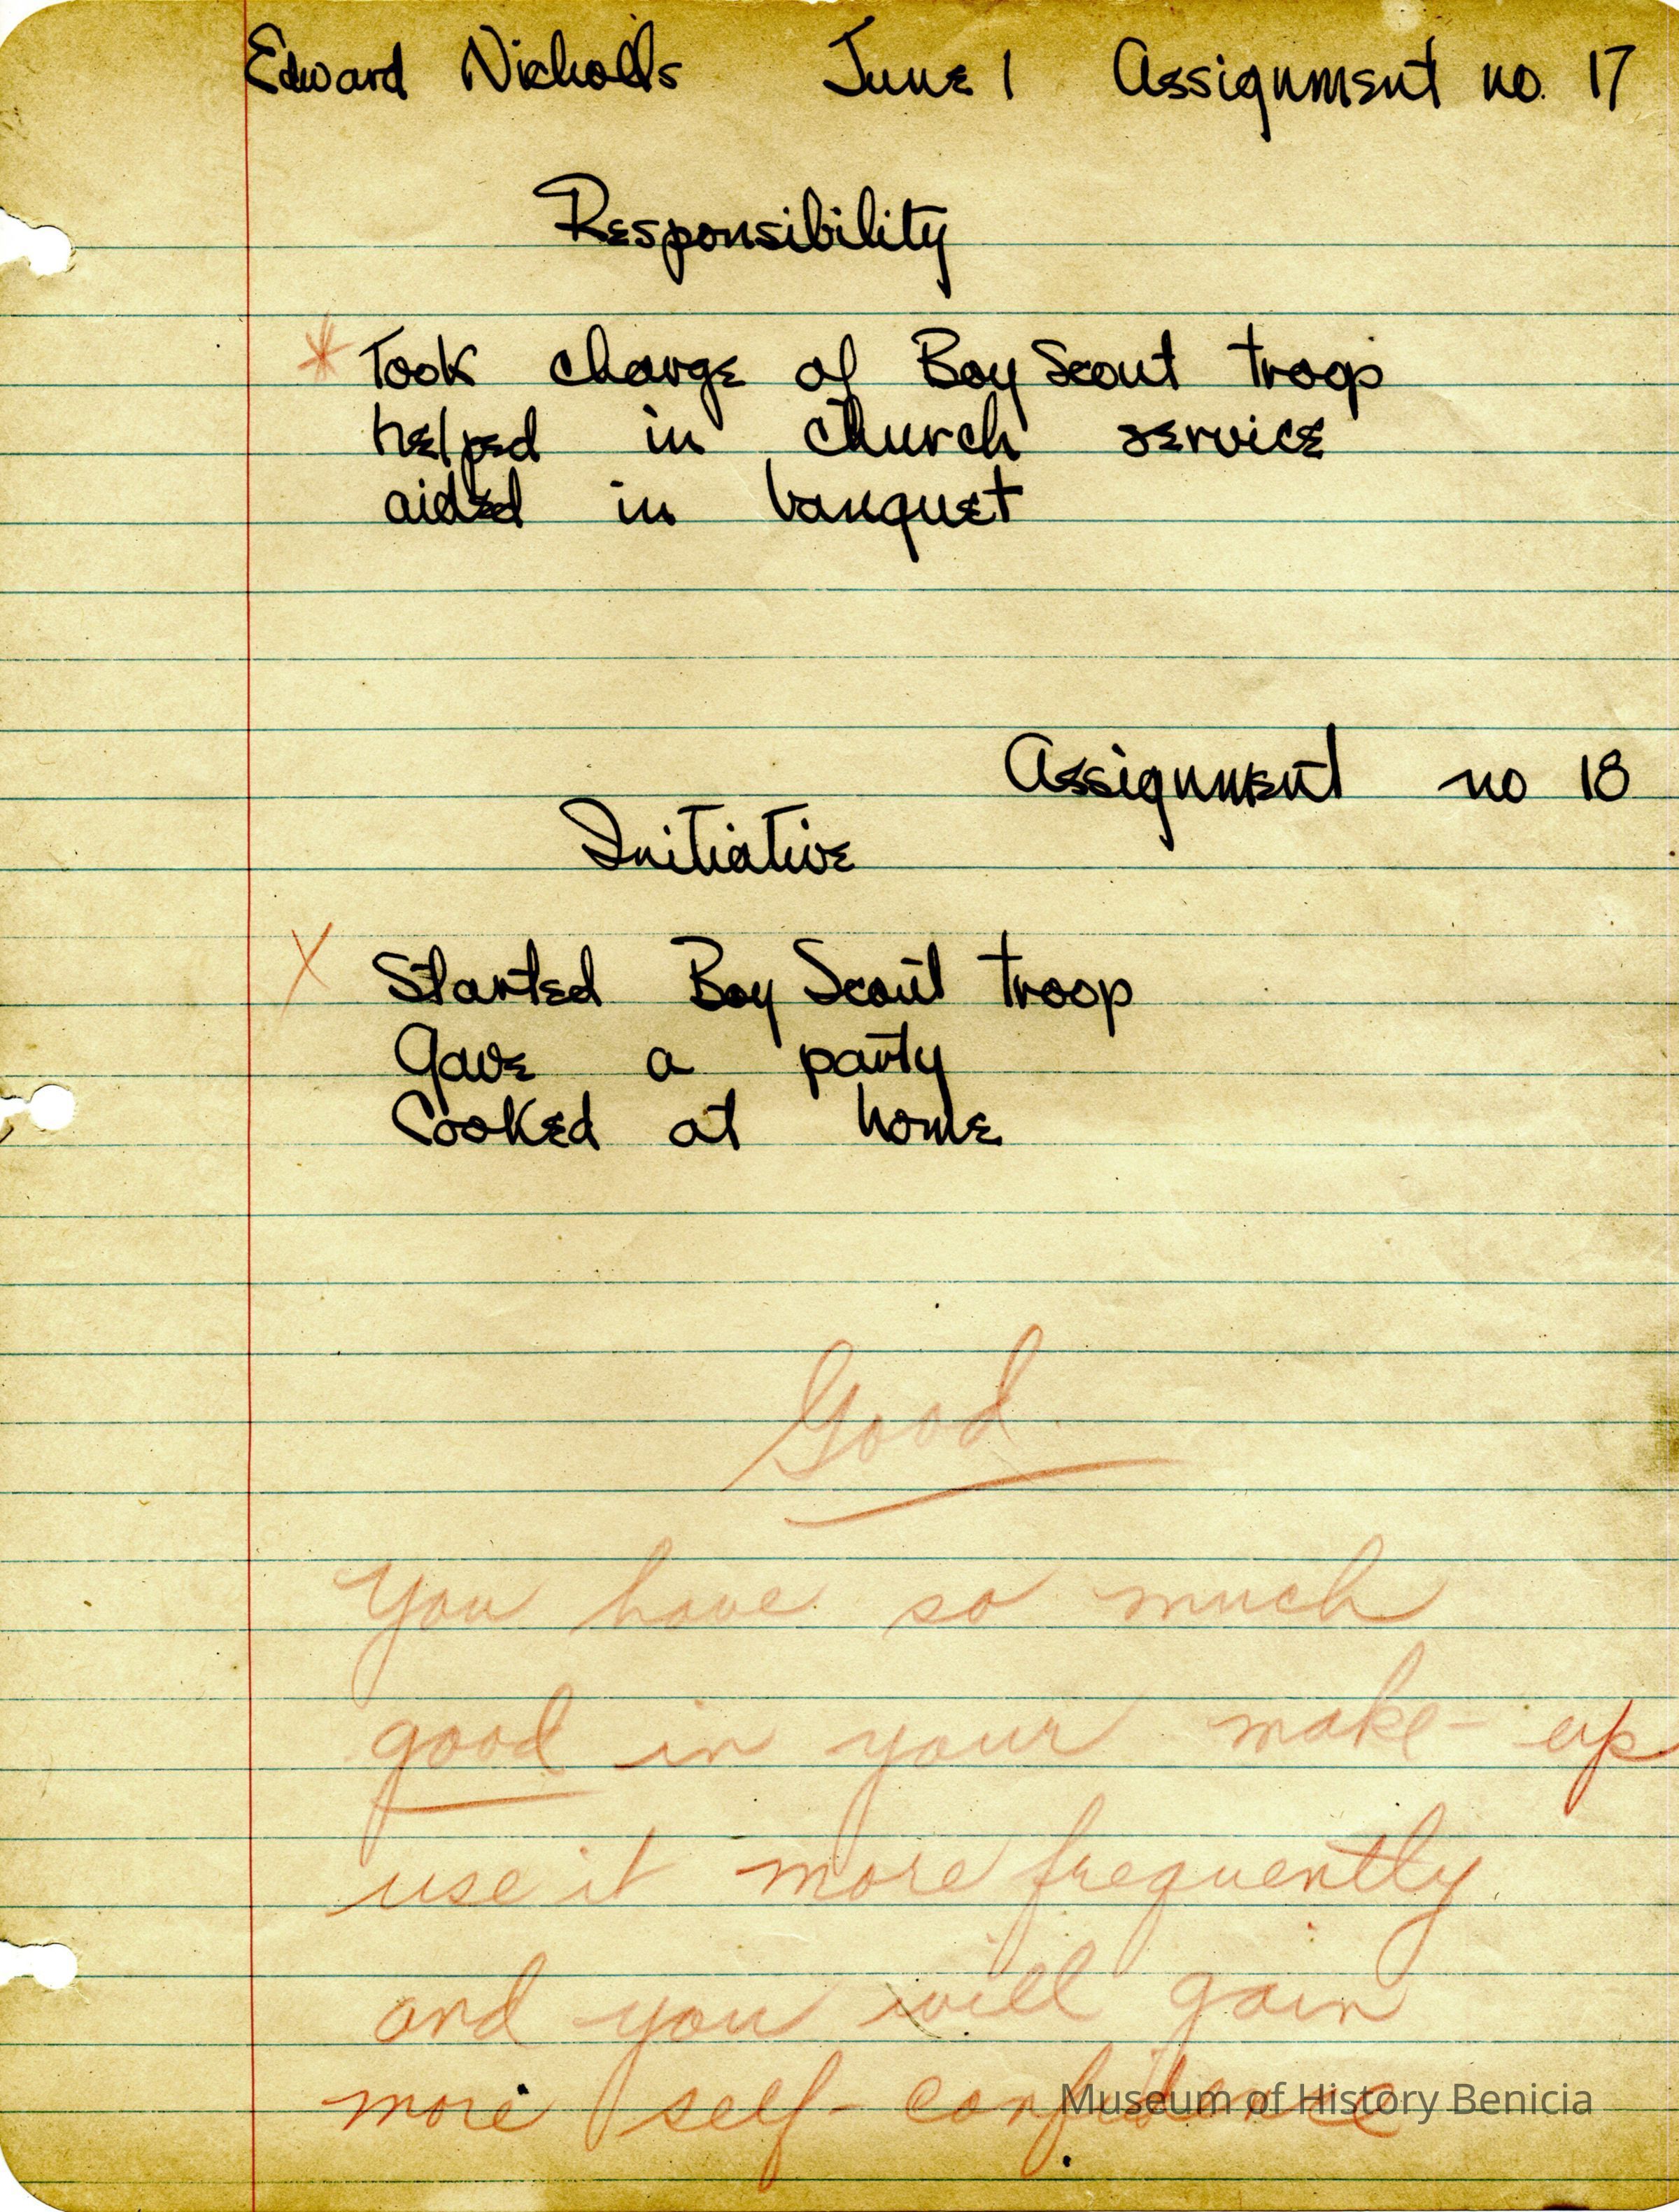 Edward Nicholls June 1 Assignment no. 17
Responsibility
* Took charge of Boy Scout troop
helped in church service
aided in banquet
Assignment no 18
Initiative
X Started Boy Scout troop
Gave a party
Cooked at home
Good
You have so much
good in your make-up
use it more frequently
and you will gain
more self-confidence
Museum of History Benicia